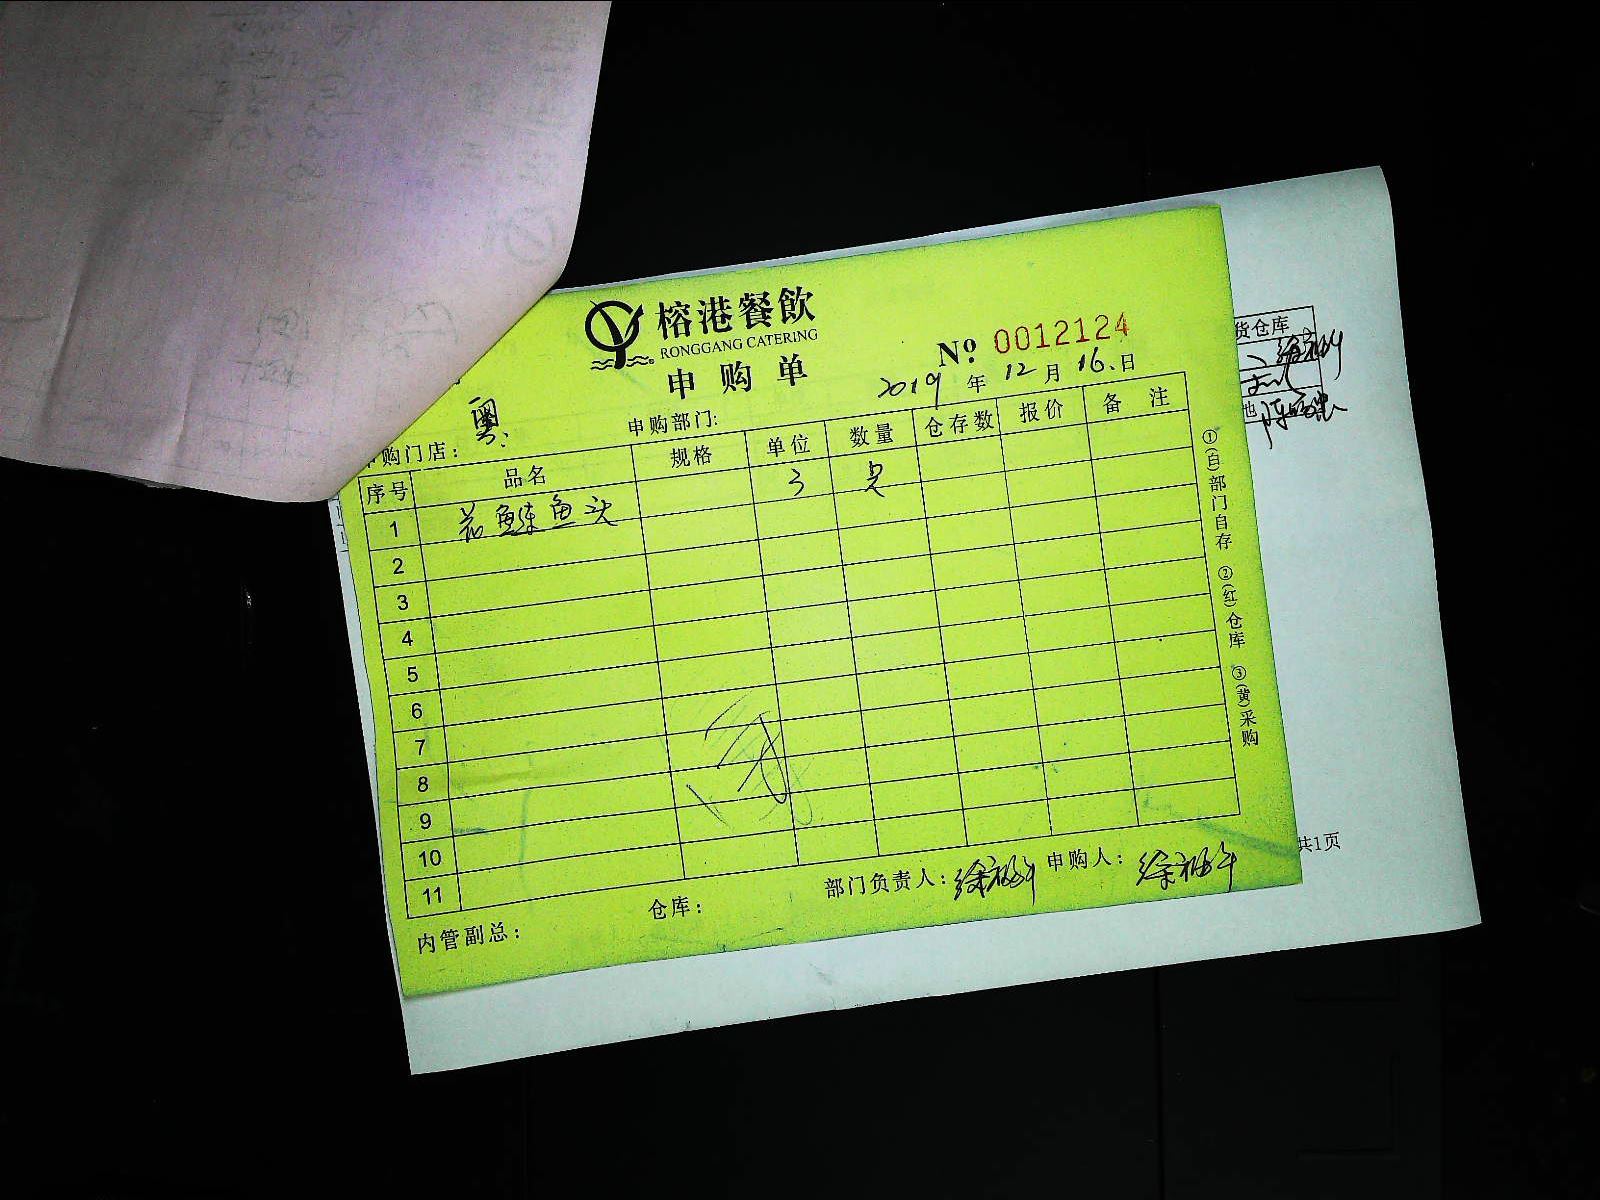 榕港餐飲
RONGGANG CATERING
申购单
№ 0012124
2019年12月16日
申购门店：
申购部门：
序号 品名 规格 单位 数量 仓存数 报价 备注
1 花鲢鱼头 3
2
3
4
5
6
7
8
9
10
11
内管副总：
仓库：
部门负责人：
申购人：
①(白)部门自存 ②(红)仓库 ③(黄)采购
货仓库
共1页